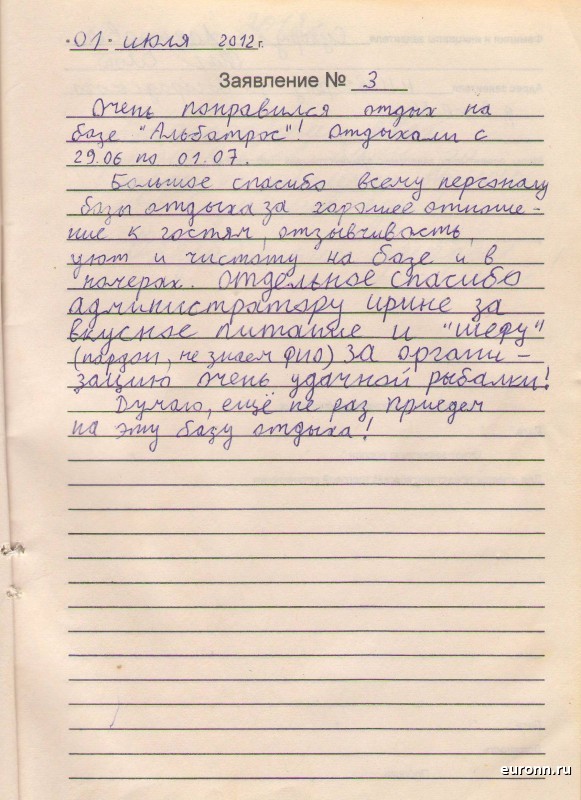 01 июля 2012 г.
Заявление № 3
Очень понравился отдых на
базе "Альбатрос"! Отдыхали с
29.06 по 01.07.
Большое спасибо всему персоналу
базы отдыха за хорошее отноше-
ние к гостям, отзывчивость,
уют и чистоту на базе и в
номерах. Отдельное спасибо
администратору Ирине за
вкусное питание и "шефу"
(пардон, не знаем ФИО) за органи-
зацию очень удачной рыбалки!
Думаю, ещё не раз приедем
на эту базу отдыха!
euronn.ru